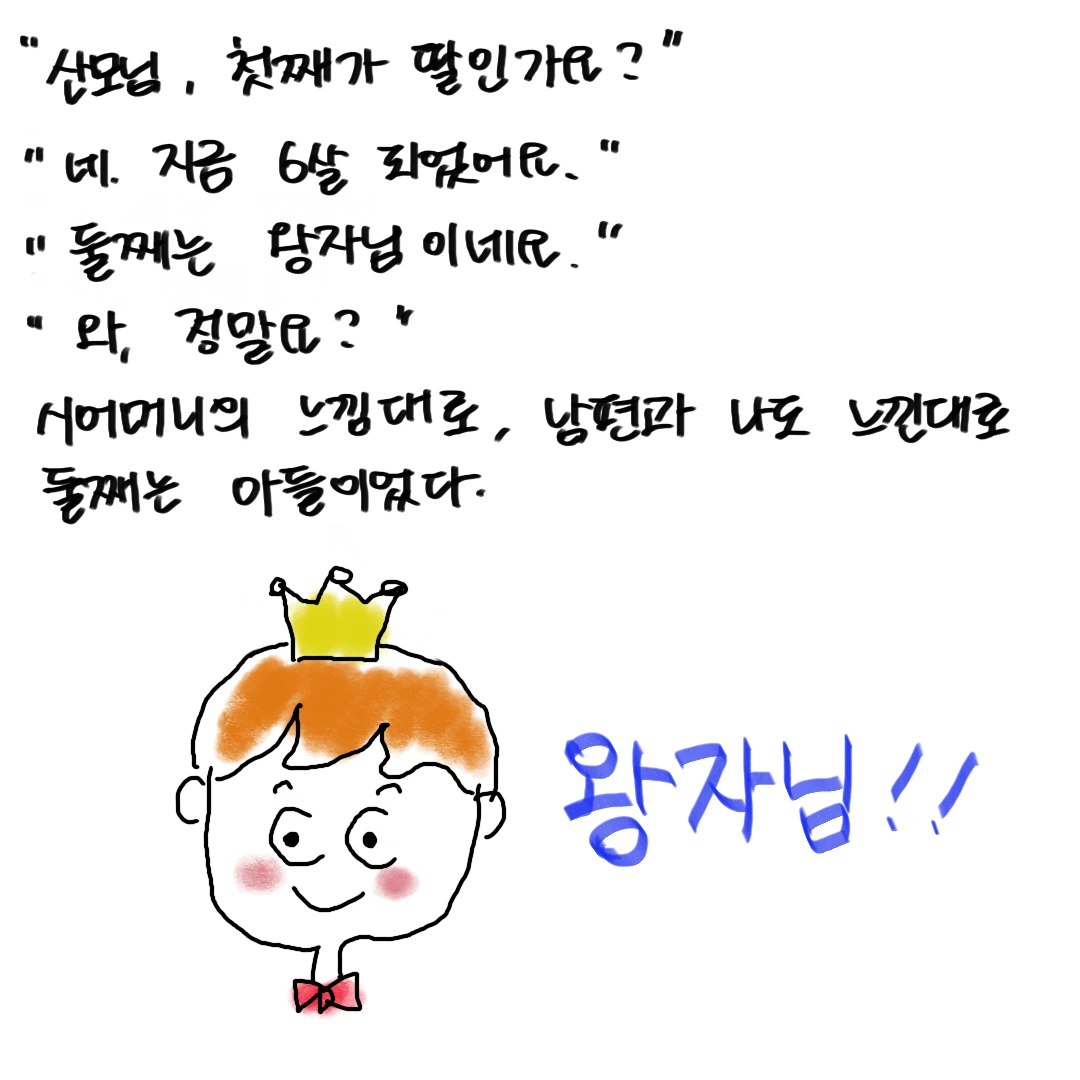 "산모님, 첫째가 딸인가요?"
"네. 지금 6살 되었어요."
"둘째는 왕자님이네요."
"와, 정말요?"
시어머니의 느낌대로, 남편과 나도 느낀대로
둘째는 아들이었다.
왕자님!!